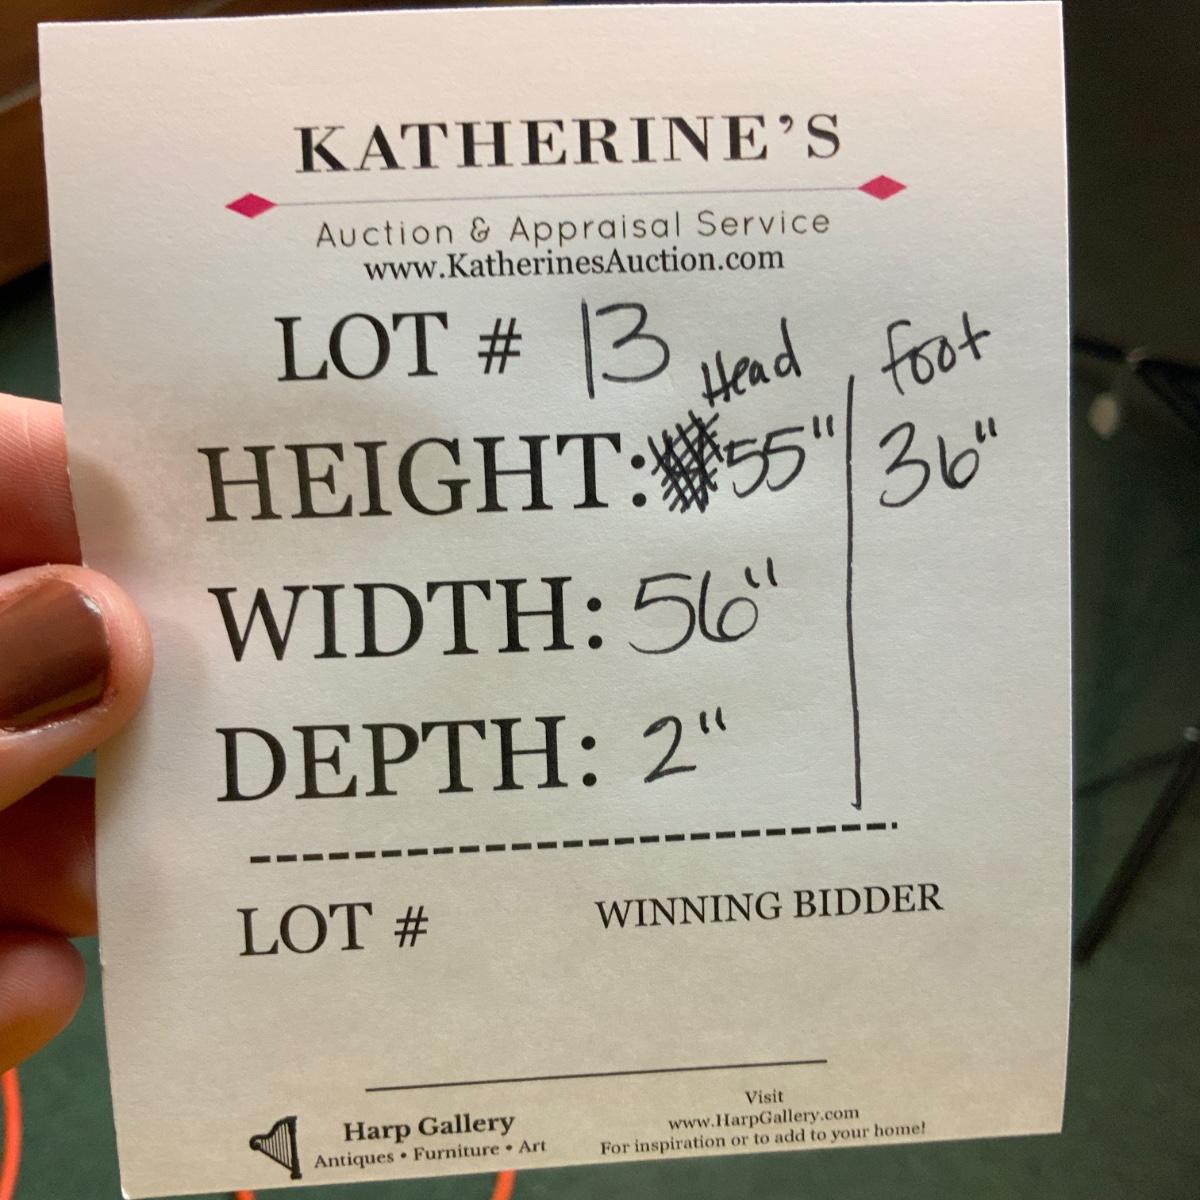 KATHERINE'S
Auction & Appraisal Service
www.KatherinesAuction.com
LOT # 13 Head foot
HEIGHT: 55" 36"
WIDTH: 56"
DEPTH: 2"
LOT # WINNING BIDDER
Harp Gallery
Antiques • Furniture • Art
Visit
www.HarpGallery.com
For inspiration or to add to your home!